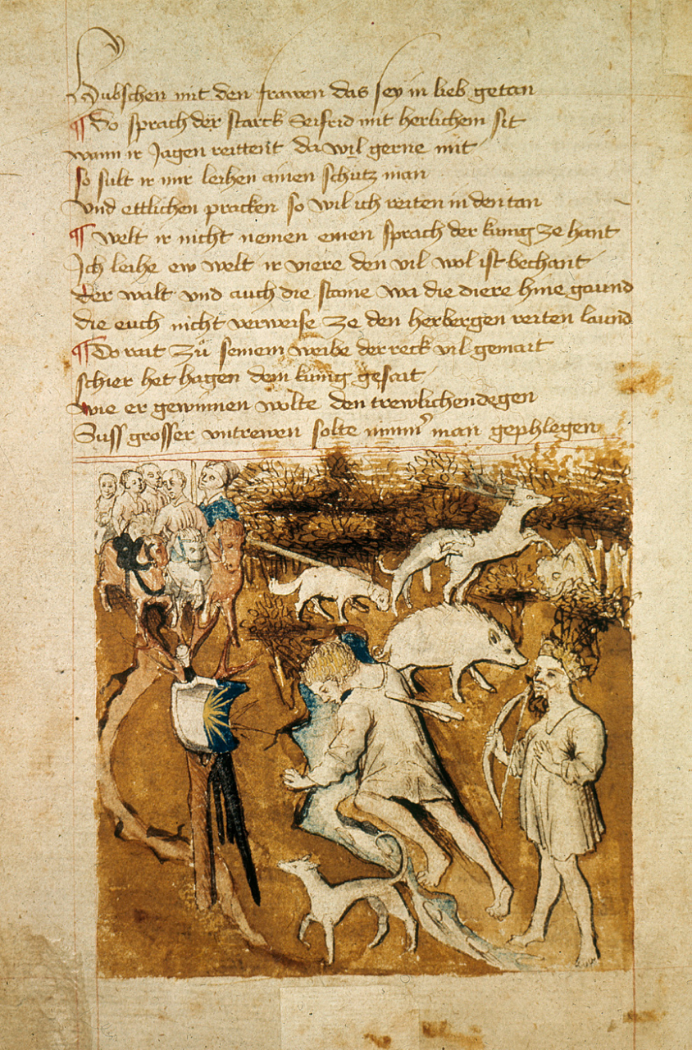 Hubschen mit den frawen das sey in lieb getan
¶ Do sprach der starck Seifrid mit herlichem sit
wann ir Jagen reittent da wil gerne mit
so sult ir mir leihen ainen schutz man
vnd ettlichen pracken so wil ich reiten in den tan
¶ welt ir nicht nemen einen sprach der kunig ze hant
Ich leihe ew welt ir viere den vil wol ist bechant
der walt vnd auch die stame wa die diere hine gaund
die euch nicht verweise ze den herbergen reiten laund
¶ Do rait zu seinem weibe der reck vil gemait
schier het hagen dem kunig gesait
wie er gewinnen wolte den trewlichen degen
Suss grosser vntrewen solte nimmer man gephlegen